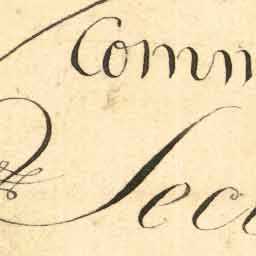 Comm
Sec